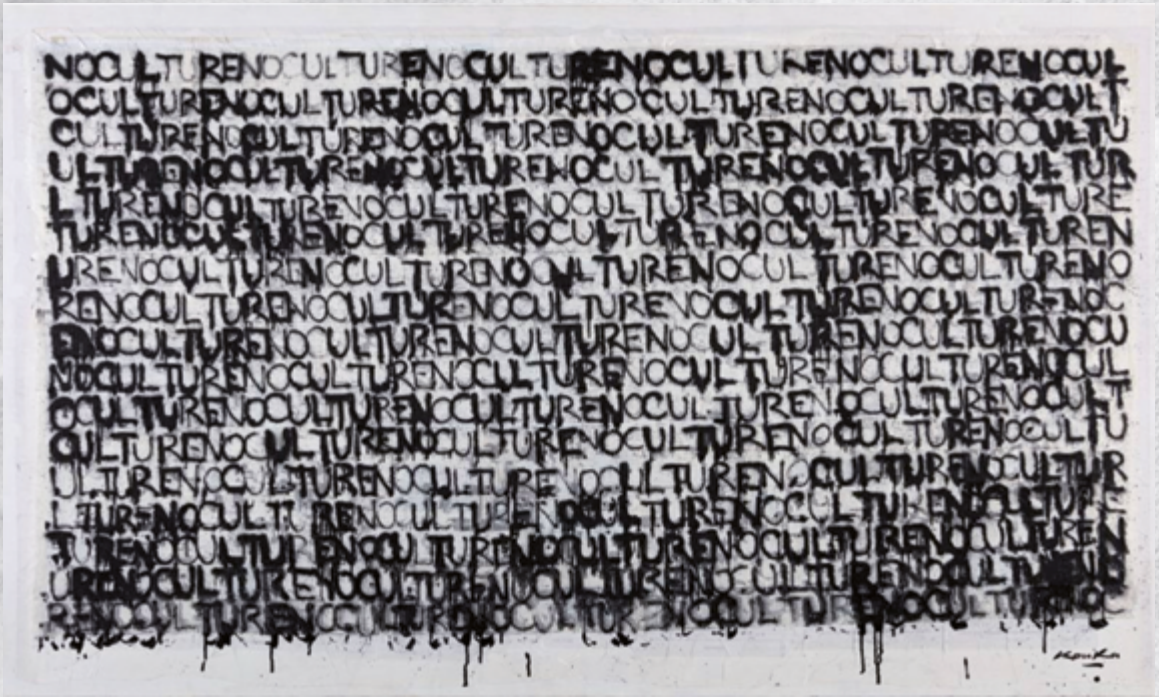 NOCULTURENOCULTURENOCULTURENOCULTURENOCULTURENOCUL
OCULTURENOCULTURENOCULTURENOCULTURENOCULTURENOCULT
CULTURENOCULTURENOCULTURENOCULTURENOCULTURENOCULTU
ULTURENOCULTURENOCULTURENOCULTURENOCULTURENOCULTUR
LTURENOCULTURENOCULTURENOCULTURENOCULTURENOCULTURE
TURENOCULTURENOCULTURENOCULTURENOCULTURENOCULTUREN
URENOCULTURENOCULTURENOCULTURENOCULTURENOCULTURENO
RENOCULTURENOCULTURENOCULTURENOCULTURENOCULTURENOC
ENOCULTURENOCULTURENOCULTURENOCULTURENOCULTURENOCU
NOCULTURENOCULTURENOCULTURENOCULTURENOCULTURENOCUL
OCULTURENOCULTURENOCULTURENOCULTURENOCULTURENOCULT
CULTURENOCULTURENOCULTURENOCULTURENOCULTURENOCULTU
ULTURENOCULTURENOCULTURENOCULTURENOCULTURENOCULTUR
LTURENOCULTURENOCULTURENOCULTURENOCULTURENOCULTURE
TURENOCULTURENOCULTURENOCULTURENOCULTURENOCULTUREN
URENOCULTURENOCULTURENOCULTURENOCULTURENOCULTURENO
RENOCULTURENOCULTURENOCULTURENOCULTURENOCULTURENOC
Kouka